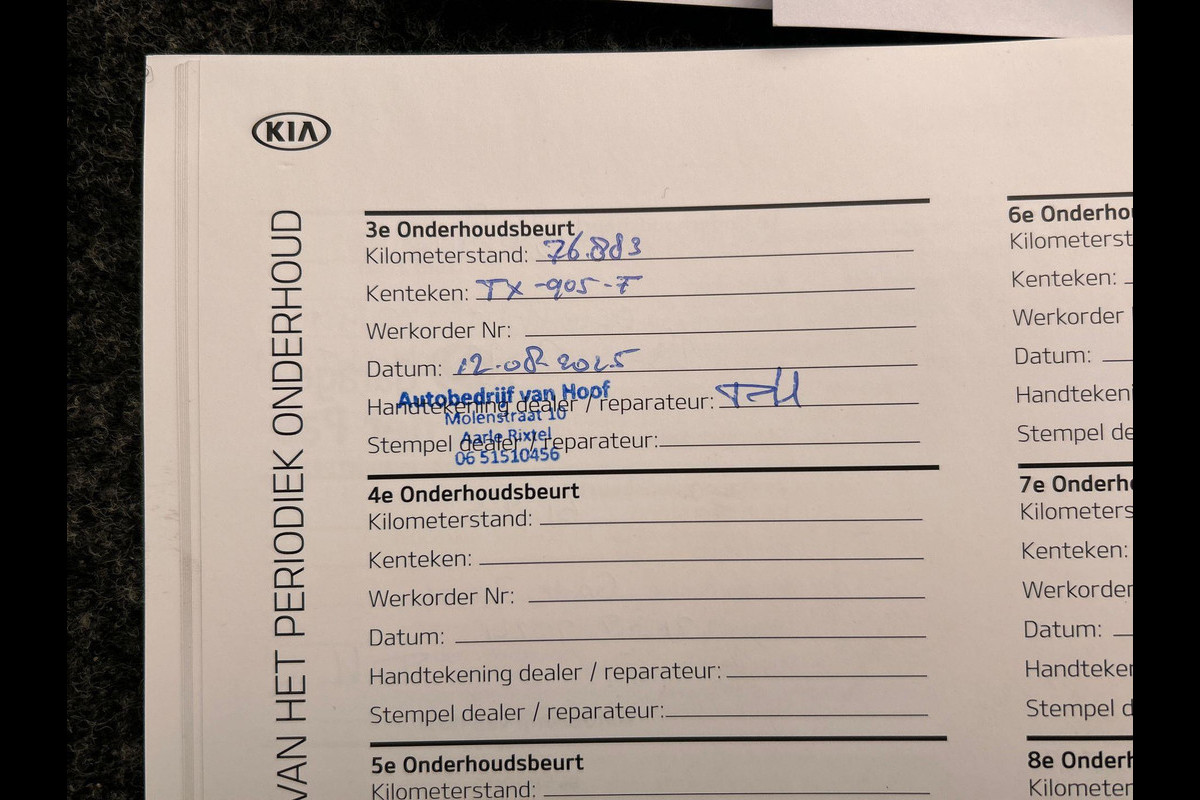 KIA
VAN HET PERIODIEK ONDERHOUD
3e Onderhoudsbeurt
Kilometerstand: 76.883
Kenteken: TX-905-F
Werkorder Nr:
Datum: 12-08-2025
Autobedrijf van Hoof
Handtekening dealer / reparateur:
Molenstraat 10
Aarle Rixtel
Stempel dealer / reparateur:
06 51510456
4e Onderhoudsbeurt
Kilometerstand:
Kenteken:
Werkorder Nr:
Datum:
Handtekening dealer / reparateur:
Stempel dealer / reparateur:
5e Onderhoudsbeurt
Kilometerstand:
6e Onderho
Kilometerst
Kenteken:
Werkorder
Datum:
Handtekeni
Stempel de
7e Onderh
Kilometers
Kenteken:
Werkorder
Datum:
Handteker
Stempel d
8e Onderh
Kilometer